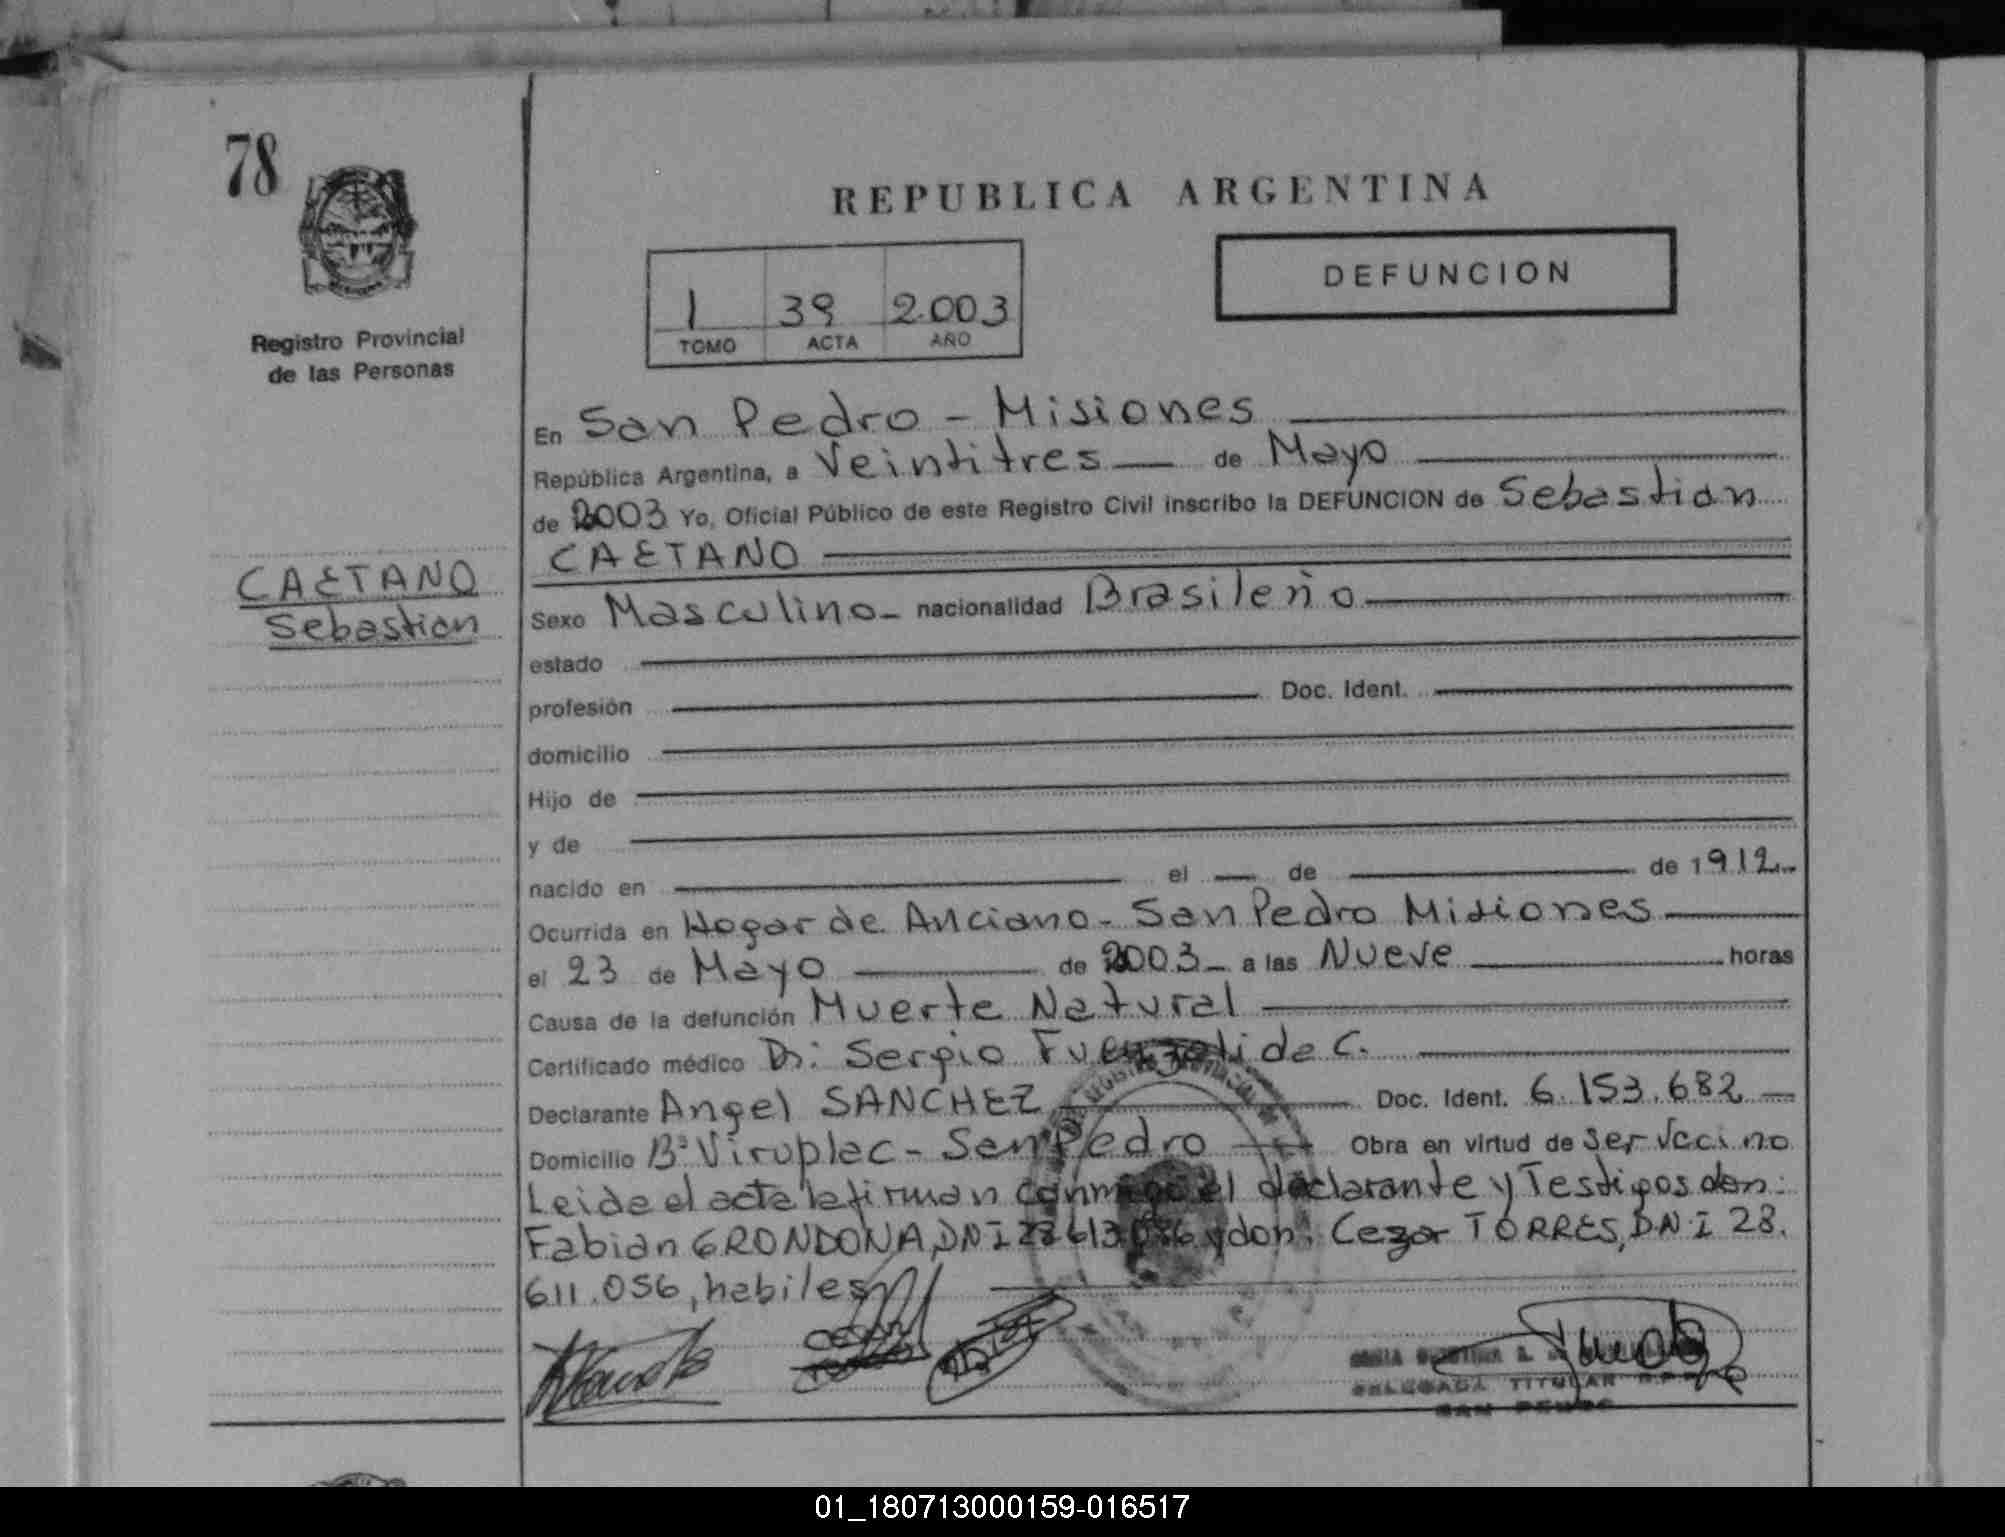 78
REPUBLICA ARGENTINA
DEFUNCION
1 39 2.003
TOMO ACTA AÑO
Registro Provincial
de las Personas
CAETANO
Sebastian
En San Pedro - Misiones
República Argentina, a Veintitres de Mayo
de 2003 Yo, Oficial Público de este Registro Civil inscribo la DEFUNCION de Sebastian
CAETANO
Sexo Masculino - nacionalidad Brasileño
estado
profesión Doc. Ident.
domicilio
Hijo de
y de
nacido en el de de 1912
Ocurrida en Hogar de Anciano - San Pedro Misiones
el 23 de Mayo de 2003 - a las Nueve horas
Causa de la defunción Muerte Natural
Certificado médico Dr: Sergio Fuenzalida C.
Declarante Angel SANCHEZ Doc. Ident. 6.153.682
Domicilio Bº Viruplac - San Pedro Obra en virtud de ser vecino
Leida el acta la firman conmigo el declarante y Testigos don:
Fabian GRONDONA, DNI 28613.086 y don: Cezar TORRES, D.N.I 28.
611.056, habiles
DELEGADA TITULAR
SAN PEDRO
01_180713000159-016517